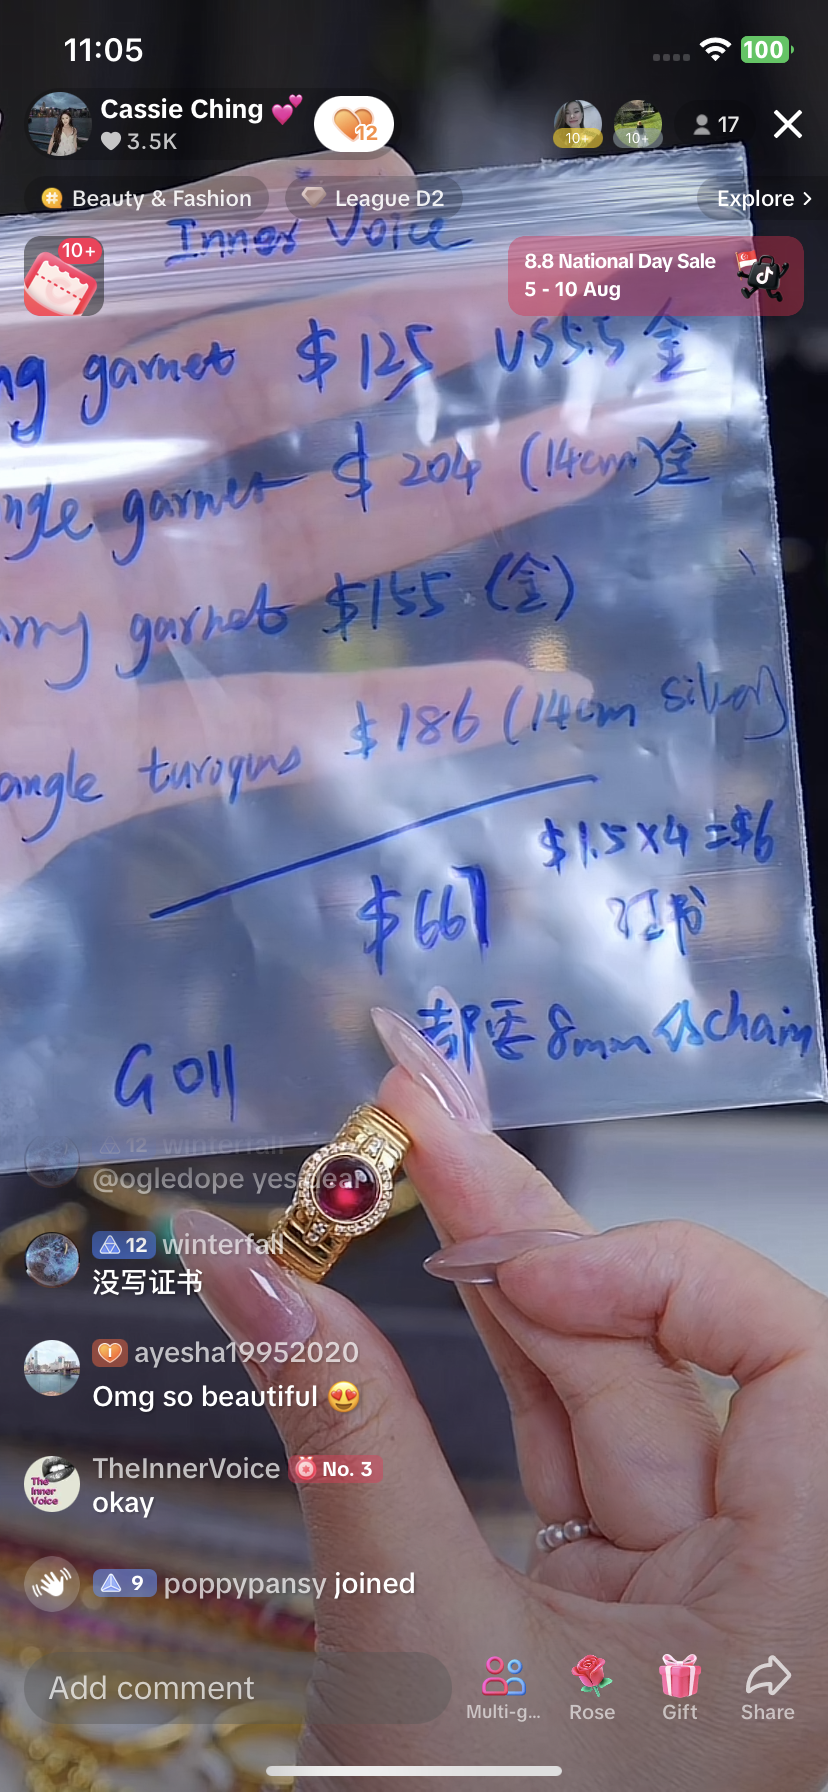 11:05
100
Cassie Ching 💕
3.5K
12
10+
10+
17
Beauty & Fashion
League D2
Explore >
Inner Voice
10+
8.8 National Day Sale
5 - 10 Aug
ng garnet $125 US5.5 金
ngle garnet $204 (14cm)金
garnet $155 (金)
angle turoqus $186 (14cm silver)
$1.5x4=$6
$667 证书
都要8mm的chain
G011
12 winterfall
@ogledope yes dear
12 winterfall
没写证书
ayesha19952020
Omg so beautiful 😍
TheInnerVoice No. 3
The Inner Voice
okay
9 poppypansy joined
Add comment
Multi-g...
Rose
Gift
Share